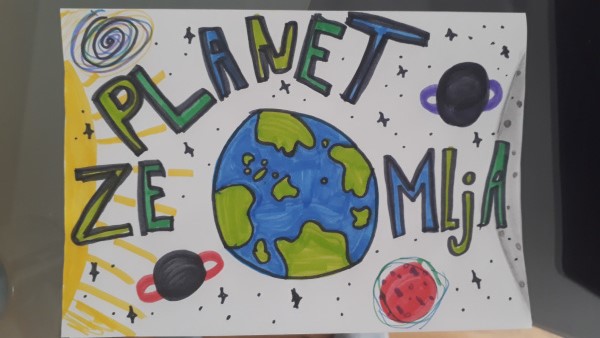 PLANET
ZEMLjA